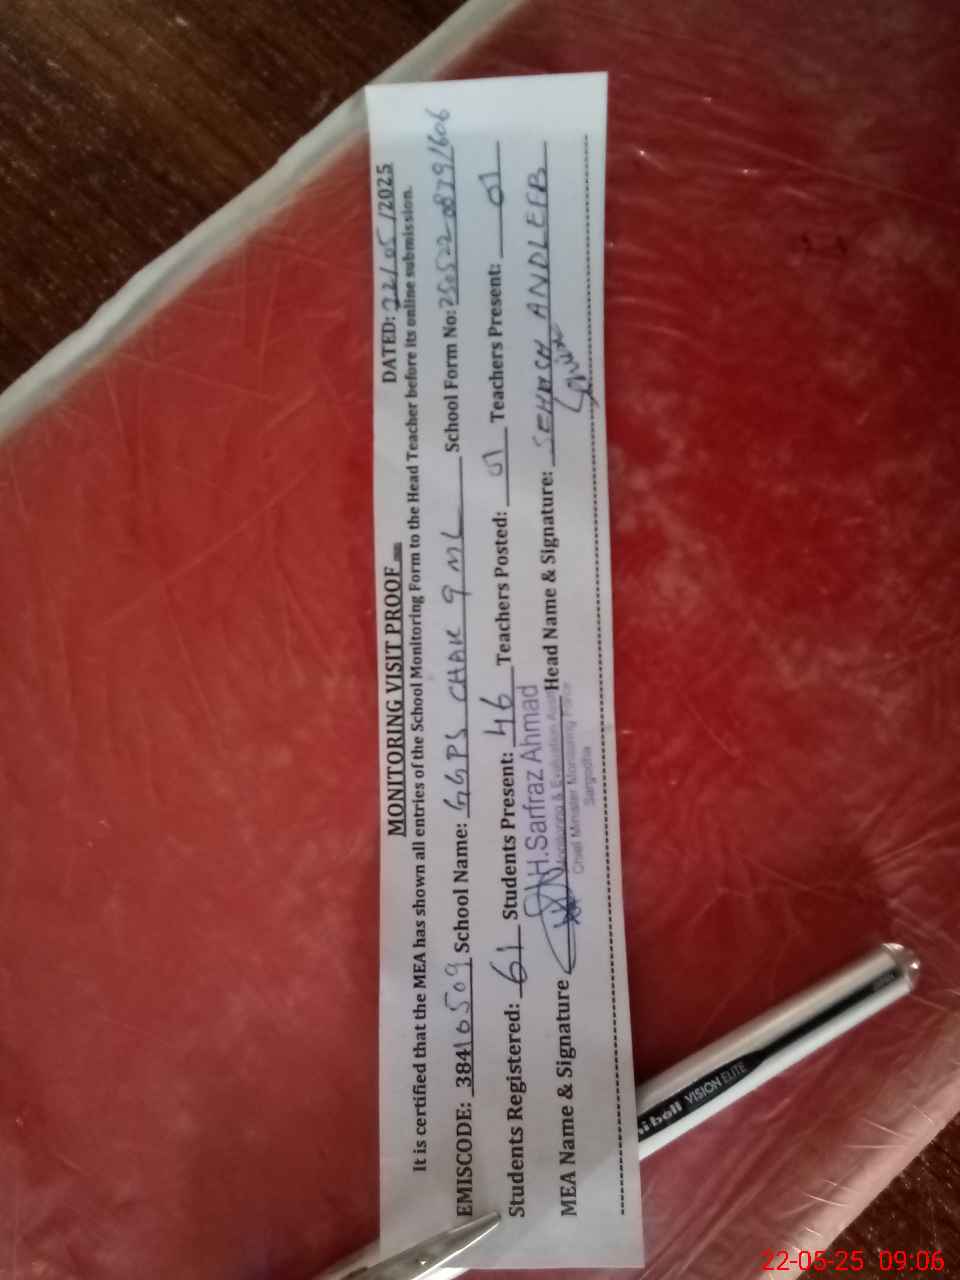 MONITORING VISIT PROOF DATED: 22/05/2025
It is certified that the MEA has shown all entries of the School Monitoring Form to the Head Teacher before its online submission.
EMISCODE: 38410509 School Name: GGPS CHAK 9 ML School Form No:
Students Registered: 61 Students Present: 46 Teachers Posted: 01 Teachers Present: 01
MEA Name & Signature H.Sarfraz Ahmad Head Name & Signature: ANDLEEB
Monitoring & Evaluation
Chief Minister Monitoring Force
Sargodha
VISION ELITE
22-05-25 09:06